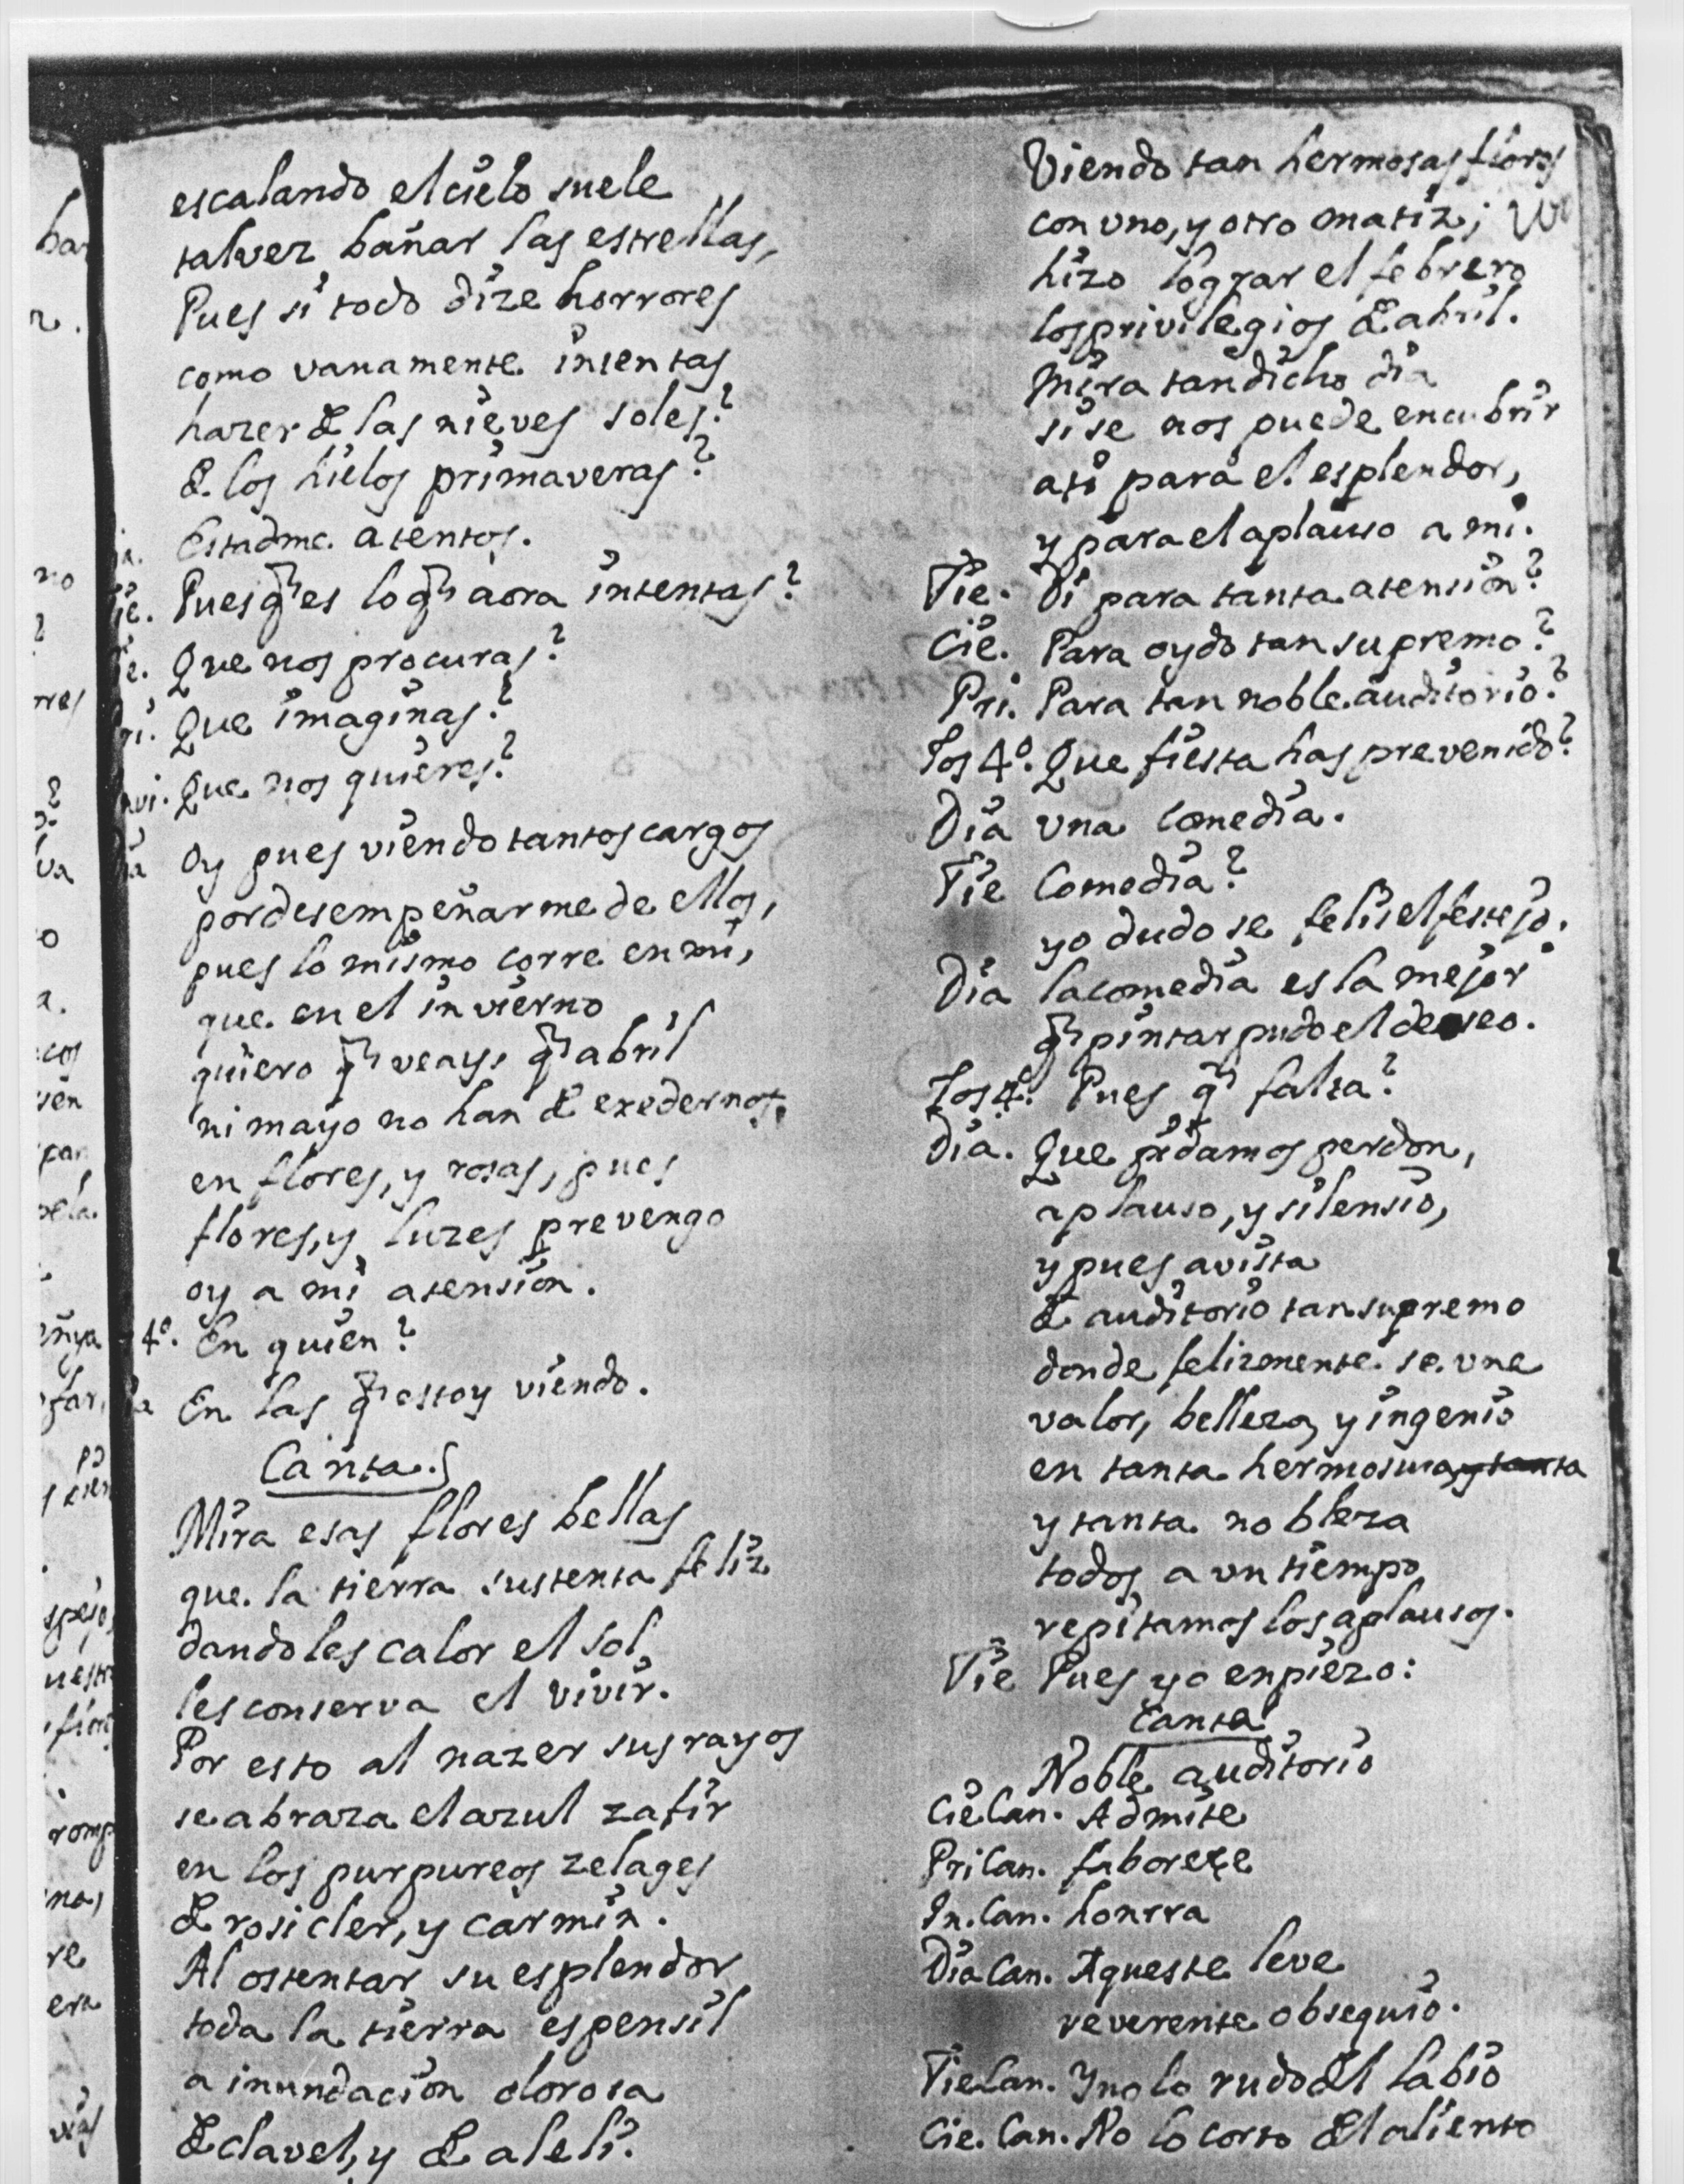 escalando el cielo suele
talvez bañar las estrellas,
Pues si todo dize horrores
como vanamente intentas
hazer de las nieves soles?
de los hielos primaveras?
Estadme atentos.
Pues q̃ es lo q̃ aora intentas?
Que nos procuras?
Que imaginas?
Que nos quieres?
Oy pues viendo tantos cargos
por desempeñarme de ellos,
pues lo mismo corre en mi,
que en el invierno
quiero q̃ veays q̃ abril
ni mayo no han de exedernos,
en flores, y rosas, pues
flores, y luzes prevengo
oy a mi atension.
4º. En quien?
En las q̃ estoy viendo.
Canta.
Mira esas flores bellas
que la tierra sustenta feliz
dandoles calor el sol,
les conserva el vivir.
Por esto al nazer sus rayos
se abraza el azul zafir
en los purpureos zelages
de rosicler, y carmin.
Al ostentar su esplendor
toda la tierra es pensil
a inundacion olorosa
de clavel, y de aleli.
Viendo tan hermosas flores
con uno, y otro matiz;
hizo lograr el febrero
los privilegios de abril.
Mira tan dicho dia
si se nos puede encubrir
asi para el esplendor,
y para el aplauso a mi.
Tie. Di para tanta atension?
Cie. Para oydo tan supremo?
Pri. Para tan noble auditorio?
Los 4º. Que fiesta has prevenido?
Dia una comedia.
Tie Comedia?
yo dudo se felis el festejo.
Dia la comedia es la mejor
q̃ pintar pudo el deseo.
Los 4º. Pues q̃ falta?
Dia. Que pidamos perdon,
aplauso, y silensio,
y pues a vista
de auditorio tan supremo
donde felizmente se une
valor, belleza, y ingenio
en tanta hermosura, y tanta
y tanta nobleza
todos a un tiempo
repitamos los aplausos.
Tie Pues yo enpiezo:
Canta
Noble auditorio
Cie Can. Admite
Pri Can. faboreze
In. Can. honrra
Dia Can. Aqueste leve
reverente obsequio.
Tie Can. Y no lo rudo del labio
Cie. Can. No lo corto del aliento